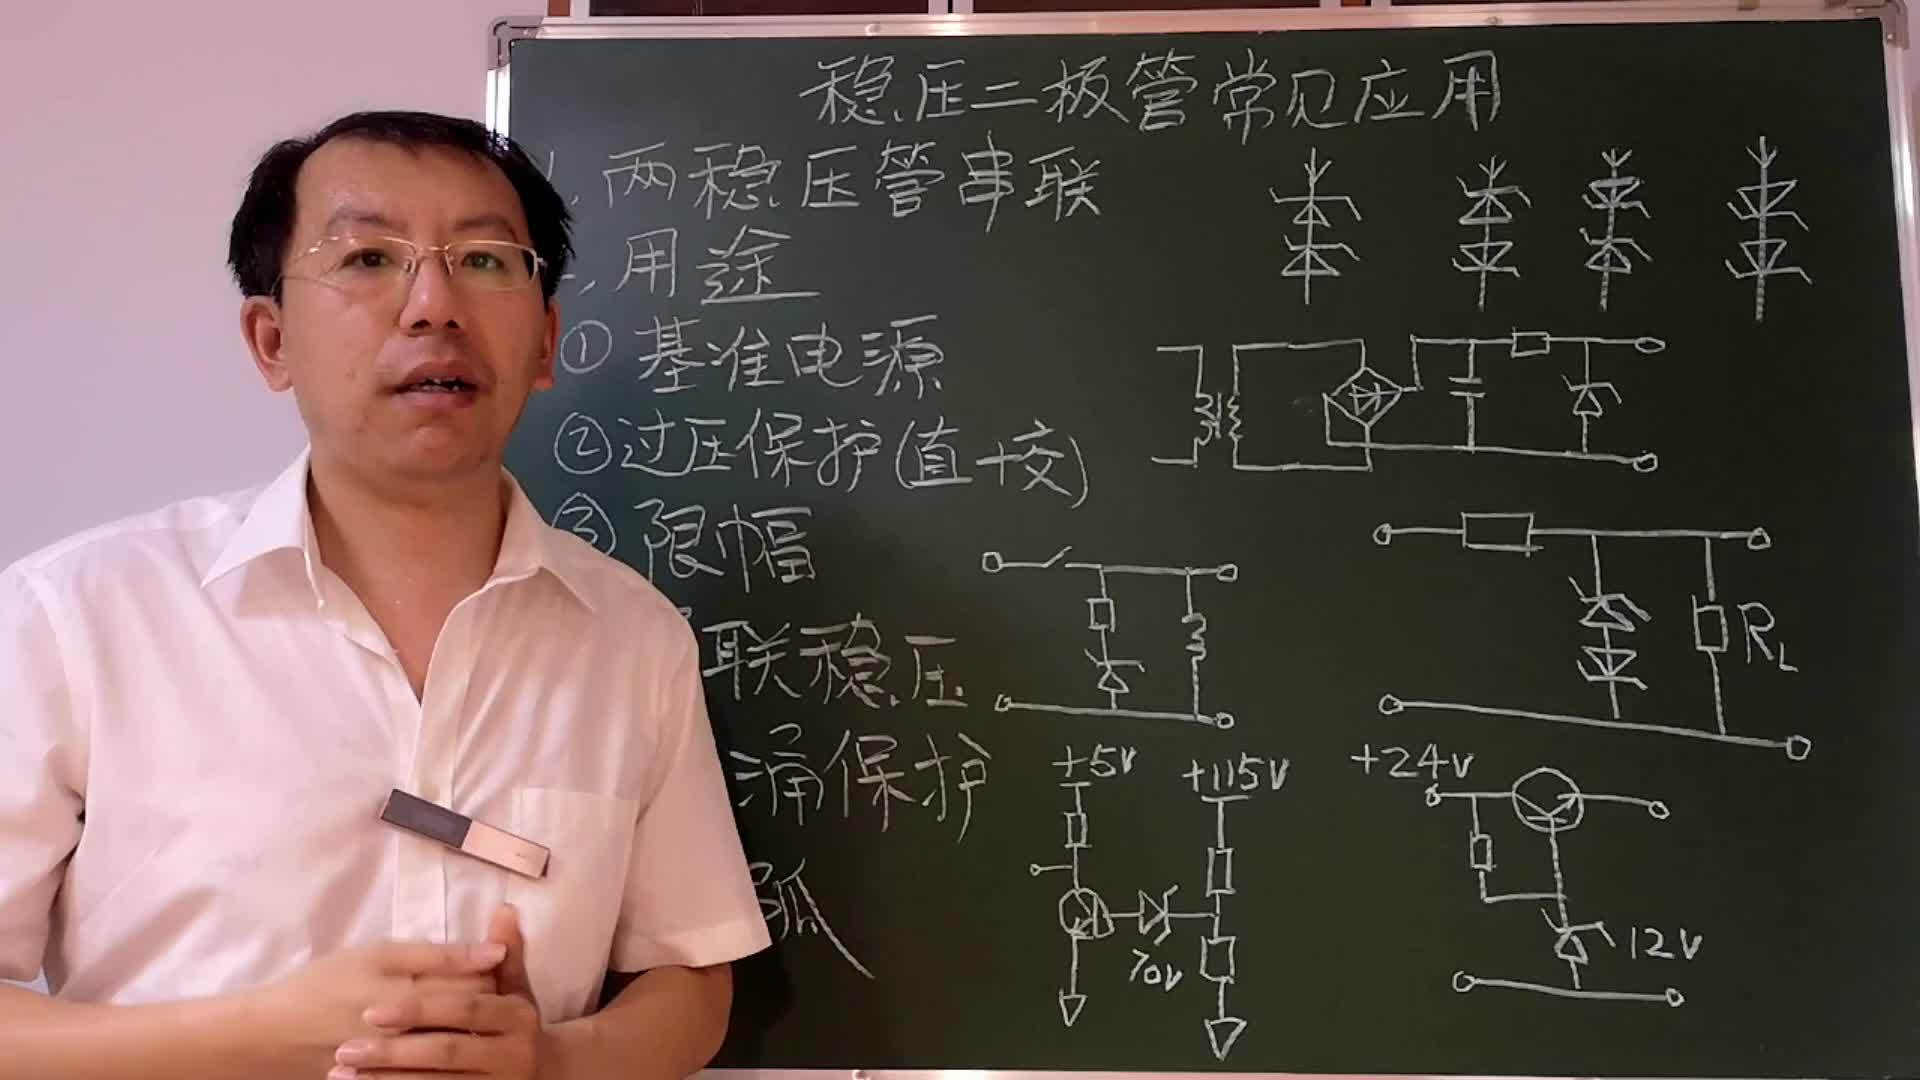 稳压二极管常见应用
、两稳压管串联
、用途
① 基准电源
② 过压保护(直十交)
③ 限幅
联稳压
涌保护
弧
RL
+5V
+115V
70V
+24V
12V